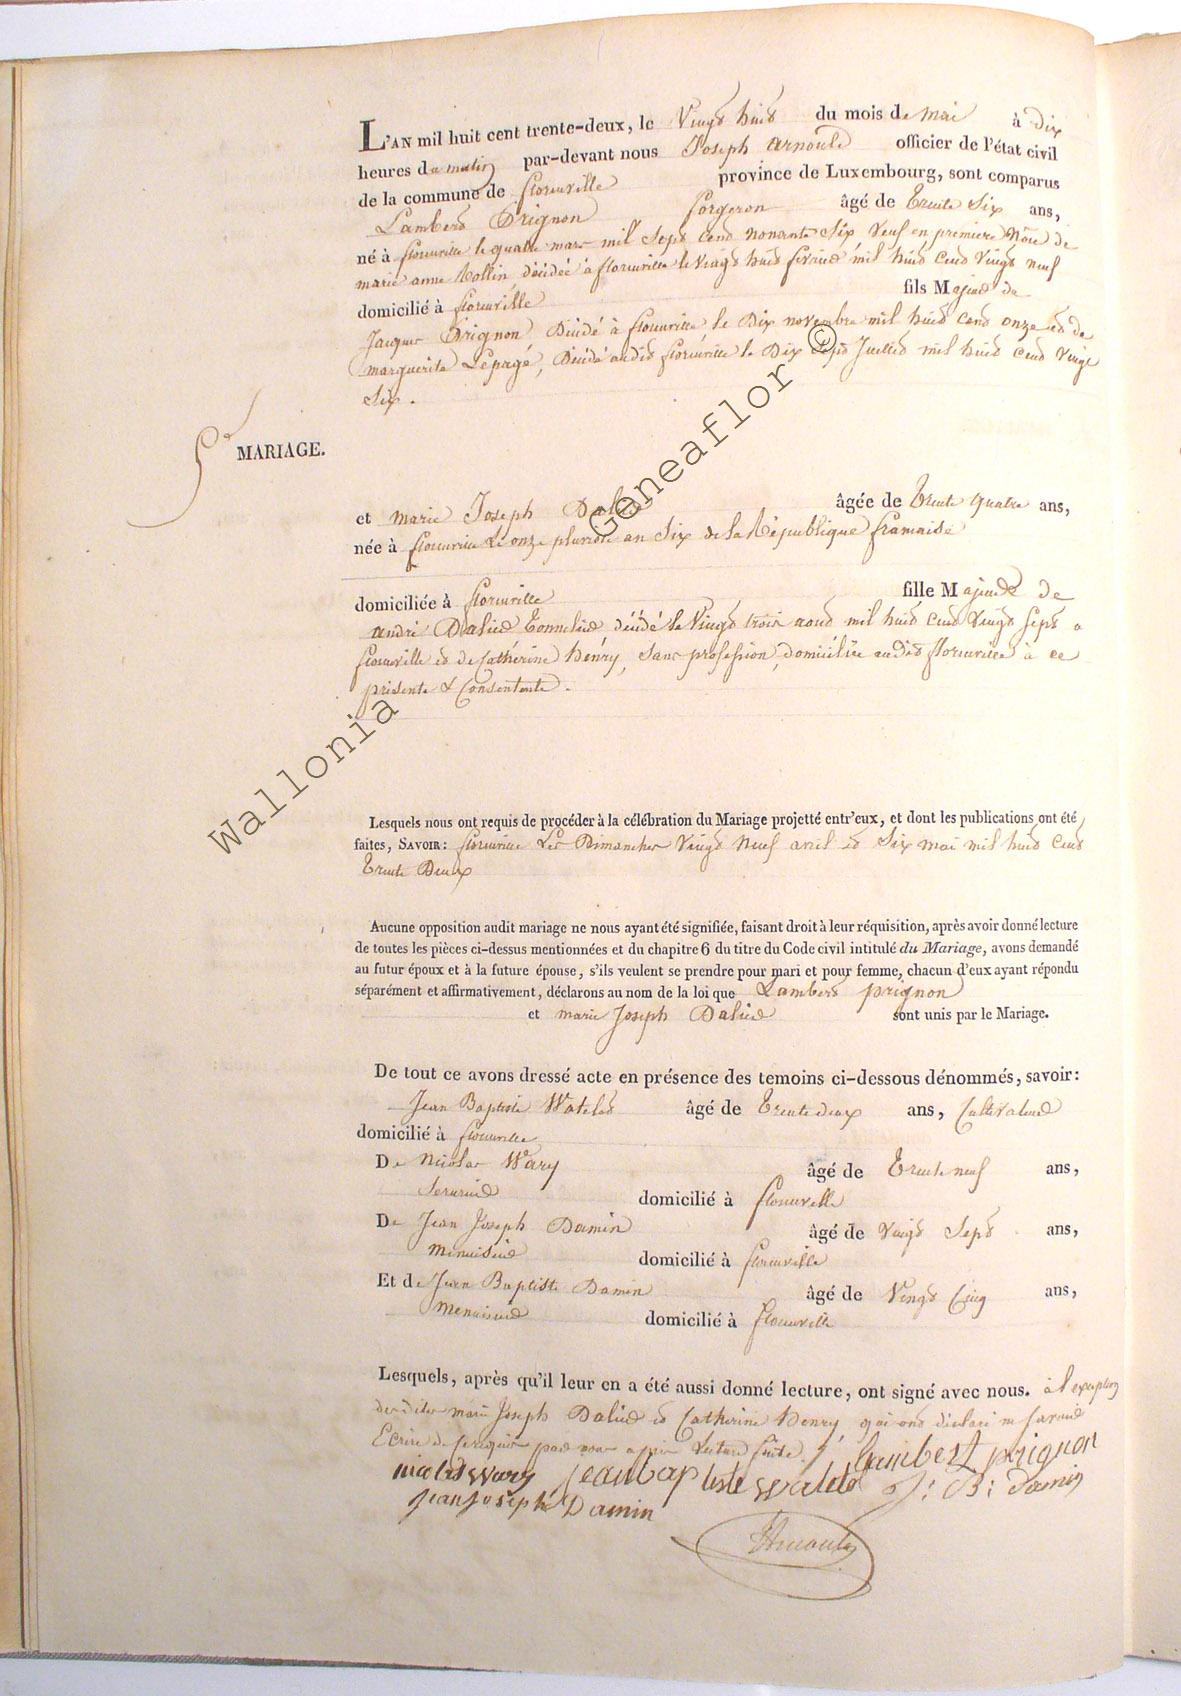 L'AN mil huit cent trente-deux, le Vingt huit du mois de mai à Dix
heures du matin par-devant nous Joseph Arnould officier de l'état civil
de la commune de florenville province de Luxembourg, sont comparus
Lambert Prignon forgeron âgé de Trente Six ans,
né à florenville le quatre mars mil Sept cent nonante Six Veuf en première Nôce de
marie anne Rollin, décédée à florenville le Vingt huit fevrier mil huit cent vingt neuf
domicilié à florenville fils Majeur de
Jacques Prignon Décidé à florenville le Dix novembre mil huit cent onze et de
marguerite Lepagé, Décidé audit florenville le Dix Sept Juillet mil huit cent Vingt
Six.
5e MARIAGE.
et marie Joseph Dalier âgée de Trente quatre ans,
née à florenville Le onze pluviose an Six de la République francaise
domiciliée à florenville fille Majeure de
andré Dalier Tonnelier décidé le Vingt trois aout mil huit cent Vingt Sept a
florenville et de Catherine Henry, Sans profession, domiciliée audit florenville à ce
présente & Consentente.
Lesquels nous ont requis de procéder à la célébration du Mariage projetté entr'eux, et dont les publications ont été
faites, SAVOIR: florenville Les Dimanches Vingt Neuf avril et Six mai mil huit cent
Trente Deux
Aucune opposition audit mariage ne nous ayant été signifiée, faisant droit à leur réquisition, après avoir donné lecture
de toutes les pièces ci-dessus mentionnées et du chapitre 6 du titre du Code civil intitulé du Mariage, avons demandé
au futur époux et à la future épouse, s'ils veulent se prendre pour mari et pour femme, chacun d'eux ayant répondu
séparément et affirmativement, déclarons au nom de la loi que Lambert prignon
et marie Joseph Dalier sont unis par le Mariage.
De tout ce avons dressé acte en présence des temoins ci-dessous dénommés, savoir:
Jean Baptiste Watelet âgé de Trente deux ans, Cultivateur
domicilié à florenville
De Nicolas Wary âgé de Trente neuf ans,
Serurier domicilié à florenville
De Jean Joseph Damin âgé de Vingt Sept ans,
Menuisier domicilié à florenville
Et de Jean Baptiste Damin âgé de Vingt Cinq ans,
menuisier domicilié à florenville
Lesquels, après qu'il leur en a été aussi donné lecture, ont signé avec nous. à l'exception
desdites marie Joseph Dalier et Catherine Henry, qui ont declaré ne savoir
Ecrire de ce requis par nous après Lecture faite. Lambert prignon
nicolas wary jean bap tiste watelet J: B: Damin
jean joseph Damin
JArnould
Wallonia Geneaflor ©